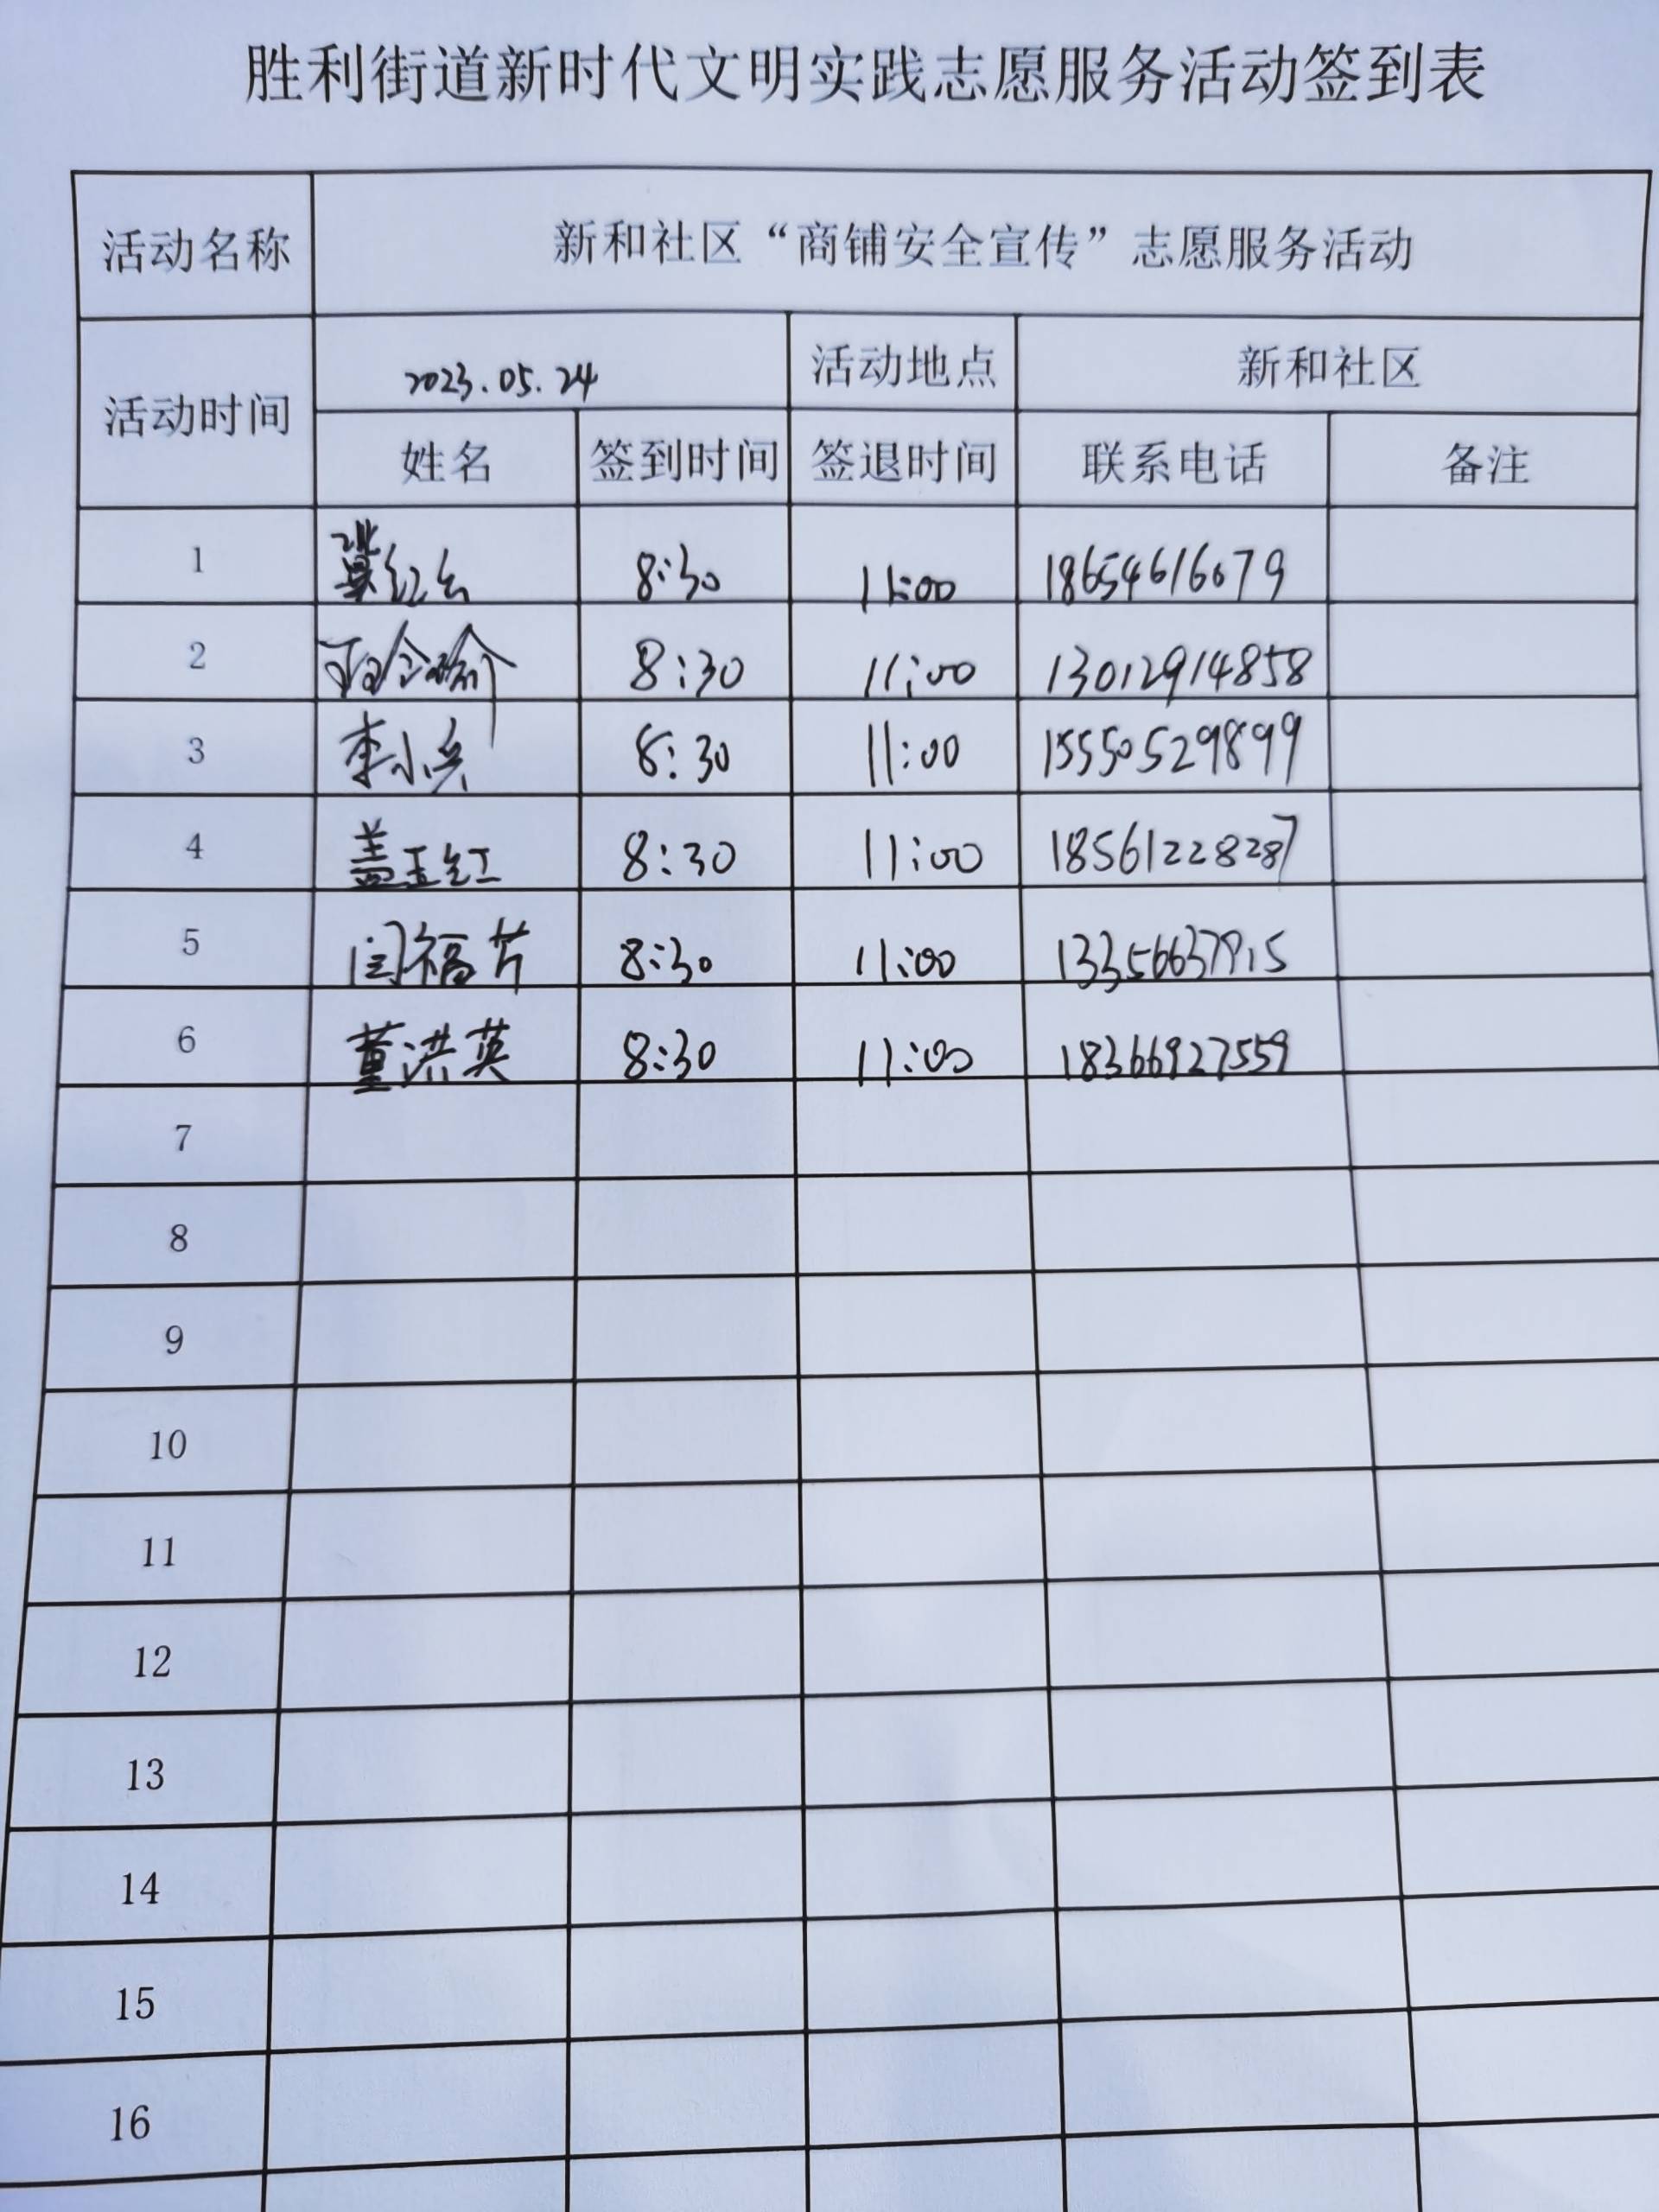 胜利街道新时代文明实践志愿服务活动签到表
活动名称 新和社区“商铺安全宣传”志愿服务活动
活动时间 2023.05.24 活动地点 新和社区
姓名 签到时间 签退时间 联系电话 备注
1 冀红云 8:30 11:00 18654616079
2 8:30 11:00 13012914858
3 李小兵 8:30 11:00 15550529899
4 盖玉红 8:30 11:00 18561228287
5 闫福芹 8:30 11:00 13356637915
6 董洪英 8:30 11:00 18366927559
7
8
9
10
11
12
13
14
15
16